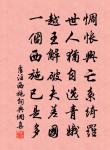 惆悵興亡系綺羅
世人猶自選青娥
越王解破夫差國
一個西施已是多